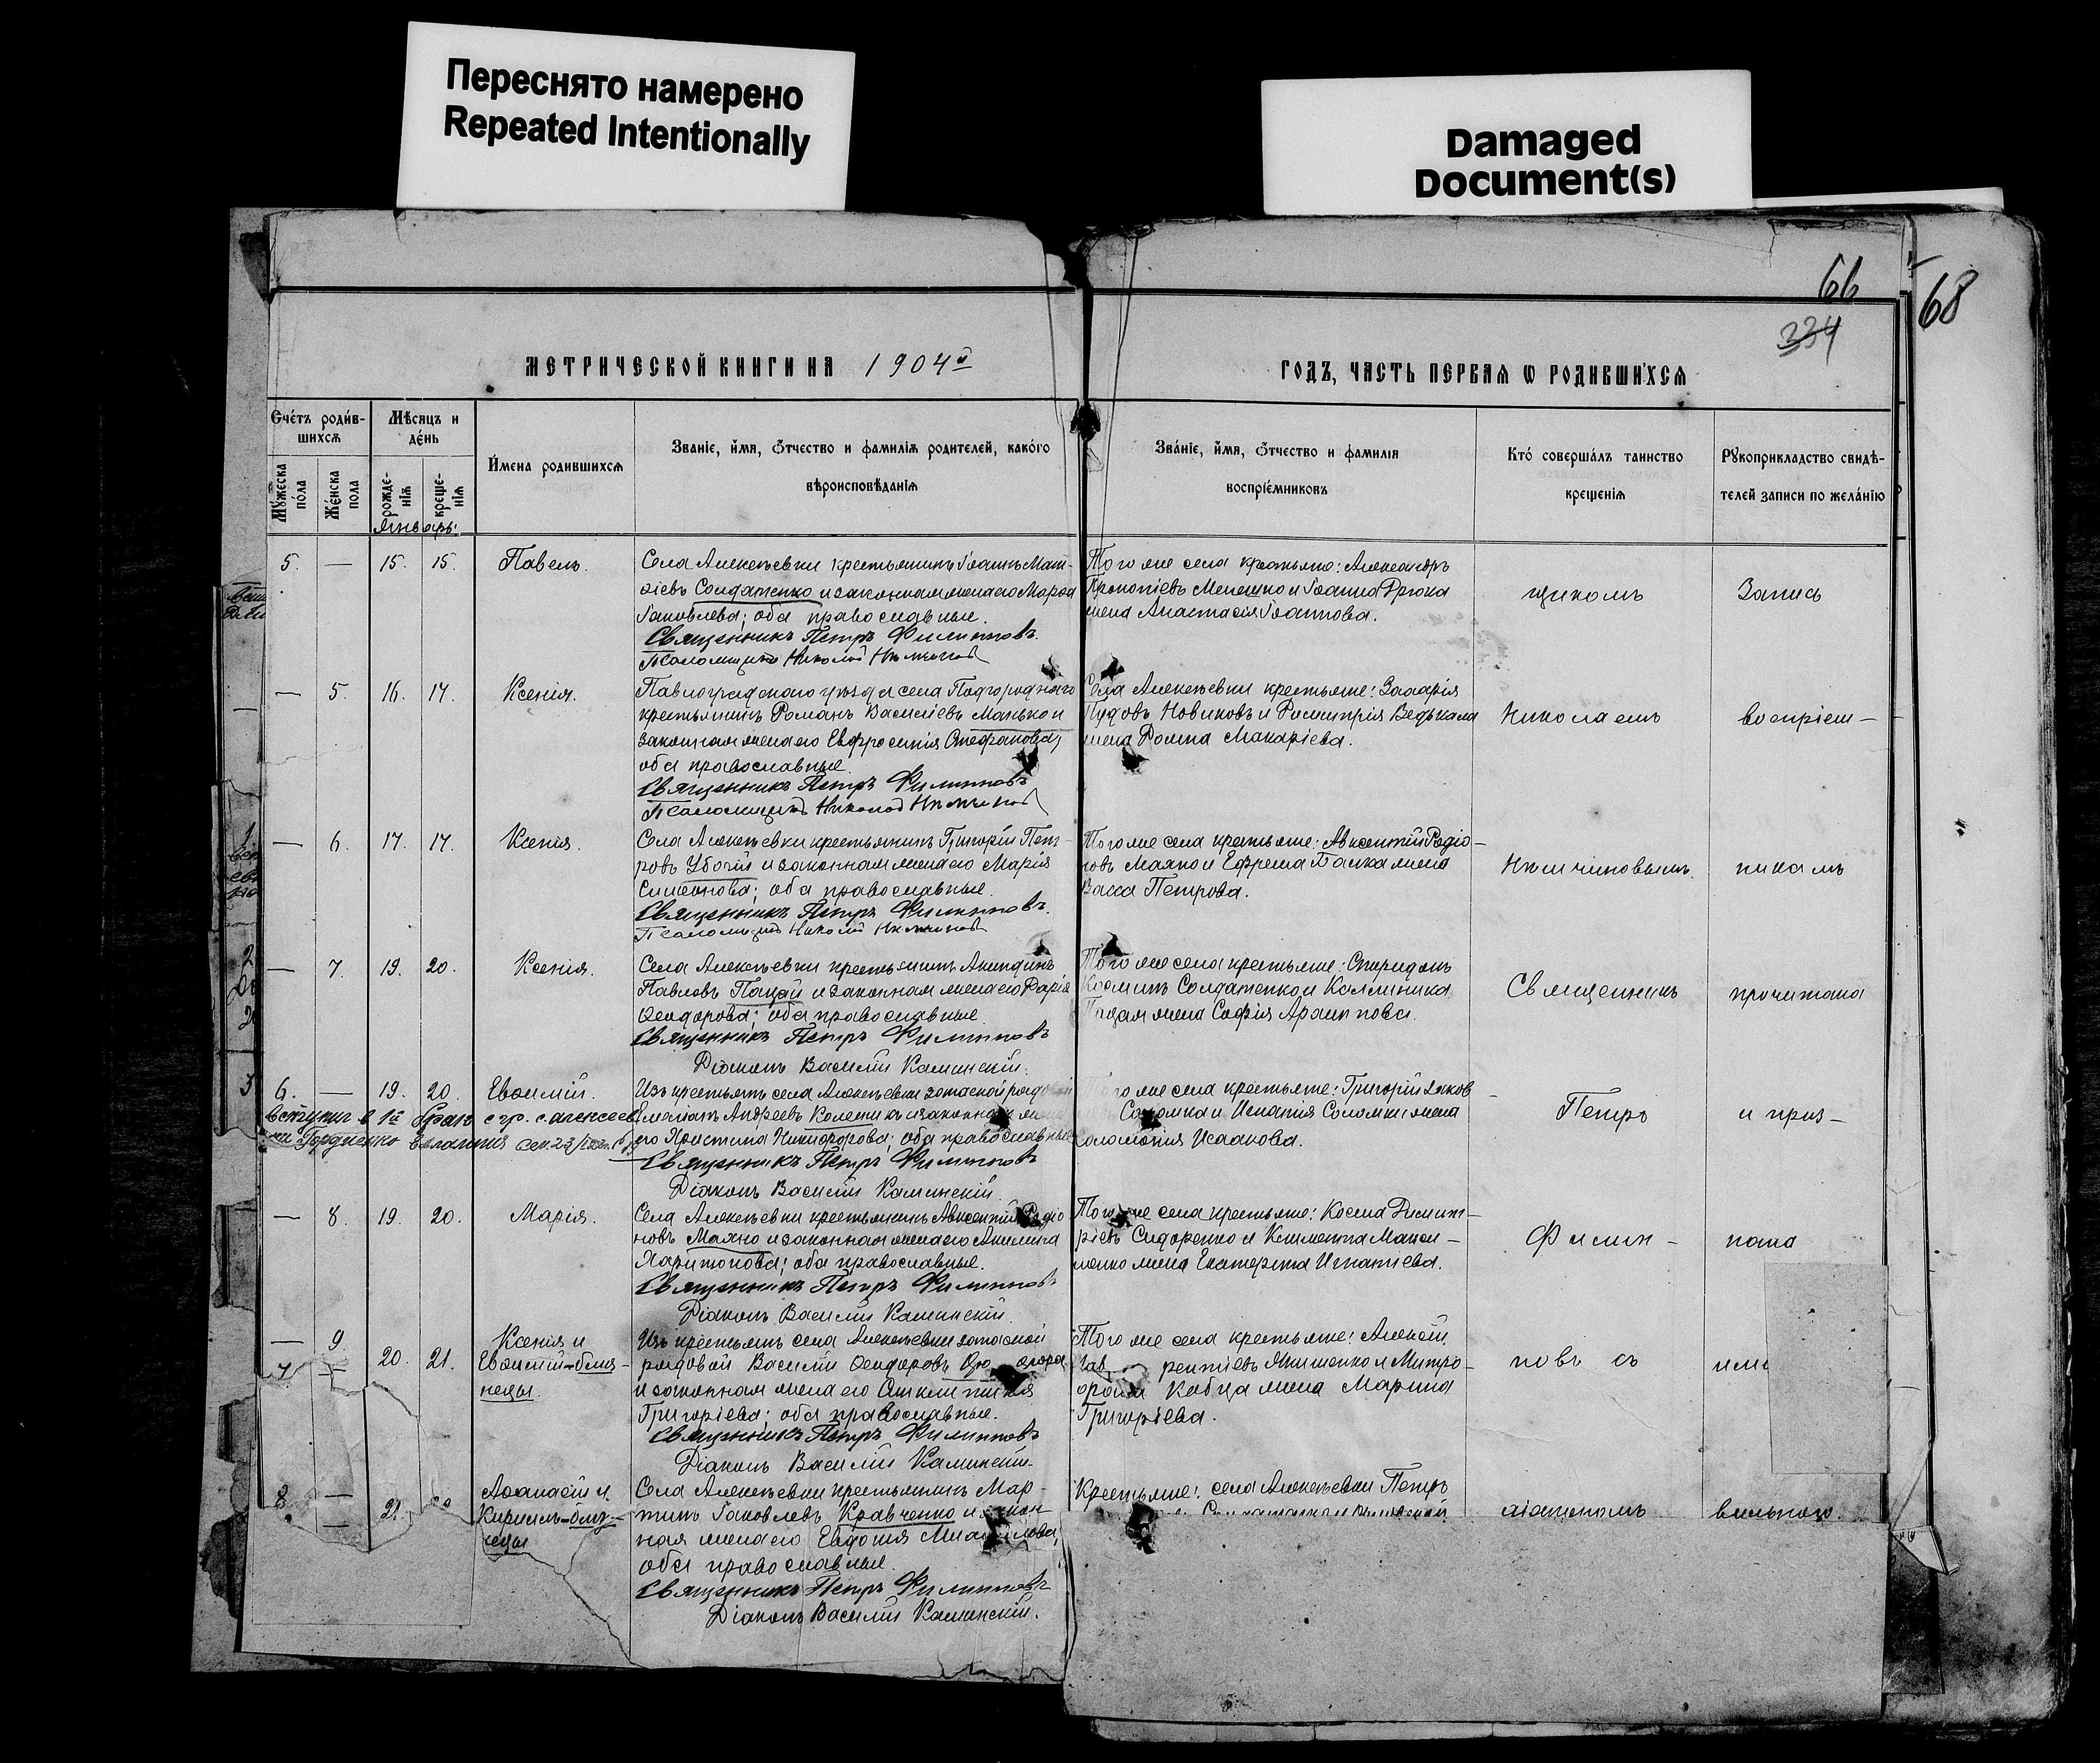 Переснято намерено
Repeated Intentionally
Damaged
Document(s)
66
68
334
МЕТРИЧЕСКОЙ КНИГИ НА 1904й
ГОДЪ, ЧАСТЬ ПЕРВАЯ Ѡ РОДИВШИХСЯ
Счетъ родив-
шихся
Мѣсяцъ и
день
Мужеска
пола
Женска
пола
рожде-
нія
креще-
нія
Имена родившихся
Званіе, имя, отчество и фамилія родителей, какого
вѣроисповѣданія
Званіе, имя, отчество и фамилія
воспріемниковъ
Кто совершалъ таинство
крещенія
Рукоприкладство свидѣ-
телей записи по желанію
Январь:
5. — 15. 15. Павелъ.
Села Алексѣевки крестьянинъ Іоаннъ Мат-
ѳіевъ Солдатенко и законная жена его Марѳа
Іаковлева; оба православные.
Священникъ Петръ Филипповъ.
Псаломщикъ Николай Нѣмчиновъ
Того же села крестьяне: Александръ
Прокопіевъ Мелешко и Іоанна Дрюка
жена Анастасія Іоаннова.
щикомъ
Запись
— 5. 16. 17. Ксенія.
Павлоградскаго уѣзда села Подгороднаго
крестьянинъ Романъ Василіевъ Манько и
законная жена его Евфросинія Стефанова;
оба православные.
Священникъ Петръ Филипповъ
Псаломщикъ Николай Нѣмчиновъ
Села Алексѣевки крестьяне: Захарія
Пудовъ Новиковъ и Димитрія Ведькала
жена Домна Макаріева.
Николаемъ
воспріем-
— 6. 17. 17. Ксенія.
Села Алексѣевки крестьянинъ Григорій Пет-
ровъ Убогій и законная жена его Марія
Симеонова; оба православные.
Священникъ Петръ Филипповъ.
Псаломщикъ Николай Нѣмчиновъ
Того же села крестьяне: Авксентій Родіо-
новъ Маяко и Ефрема Балка жена
Васса Петрова.
Нѣмчиновымъ.
никамъ
— 7. 19. 20. Ксенія.
Села Алексѣевки крестьянинъ Акиндинъ
Павловъ Пацай и законная жена его Дарія
Ѳеодорова; оба православные.
Священникъ Петръ Филипповъ
Діаконъ Василій Каминскій.
Того же села крестьяне: Спиридонъ
Косминъ Солдатенко и Каллиника
Пацая жена Софія Архиппова.
Священникъ
прочитана
6. — 19. 20. Евѳимій.
Изъ крестьянъ села Алексѣевки запасной рядовой
Емеліанъ Андреевъ Колесникъ и законная жена
его Христина Никифорова; оба православные
Священникъ Петръ Филипповъ
Діаконъ Василій Каминскій.
вступил в 1й брак с гр. с. Алексеев
ки Гордиенко
того же села крестьяне: Григорій Яков-
Соломка и Игнатія Соломки жена
Соломонія Исаакова.
Петръ
и приз-
— 8. 19. 20. Марія.
Села Алексѣевки крестьянинъ Авксентій Родіо
новъ Маяко и законная жена его Акилина
Харитонова; оба православные.
Священникъ Петръ Филипповъ
Діаконъ Василій Каминскій.
Того же села крестьяне: Косма Димит-
ріевъ Сидоренко и Климента Макси-
менко жена Екатерина Игнатіева.
Филип-
нана
— 9.
7. — 20. 21.
Ксенія и
Евѳимій-близ-
нецы.
Изъ крестьянъ села Алексѣевки запасной
рядовой Василій Ѳеодоровъ
и законная жена его
Григоріева; оба православные.
Священникъ Петръ Филипповъ
Діаконъ Василій Каминскій.
Того же села крестьяне: Алексій
рентіевъ Якименко и Митро-
фана Кобца жена Марина
Григоріева.
повъ съ
8. — 21.
—
Аѳанасій и
Кириллъ-близ-
нецы
Села Алексѣевки крестьянинъ Мар-
тинъ Іаковлевъ Кравченко и закон-
ная жена его Евдокія Михайлова;
оба православные.
Священникъ Петръ Филипповъ
Діаконъ Василій Каминскій.
Крестьяне: села Алексѣевки Петръ
діакономъ
вильною.